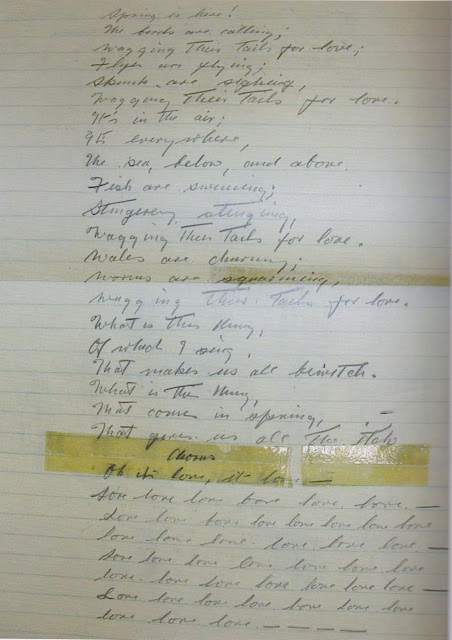 Spring is here!
The birds are calling;
wagging their tails for love;
are flying;
Skunk are sighing,
Wagging their tails for love.
It's in the air;
It's everywhere,
The sea, below, and above.
Fish are swiming;
stinging,
Wagging their tails for love.
Wales are churning;
worms are squairming,
wagging their tails for love.
What is this thing,
Of which I sing,
That makes us all bewitch.
What is the thing,
That comes in spring, —
That gives us all the itch
Chorus
Oh it's love, it love —
Love love love love love. love. —
Love love love love love love love love
love love love. love. love love —
Love love love love love love love
love. love love love love love love —
Love love love love love love love
love love love. — — — — —